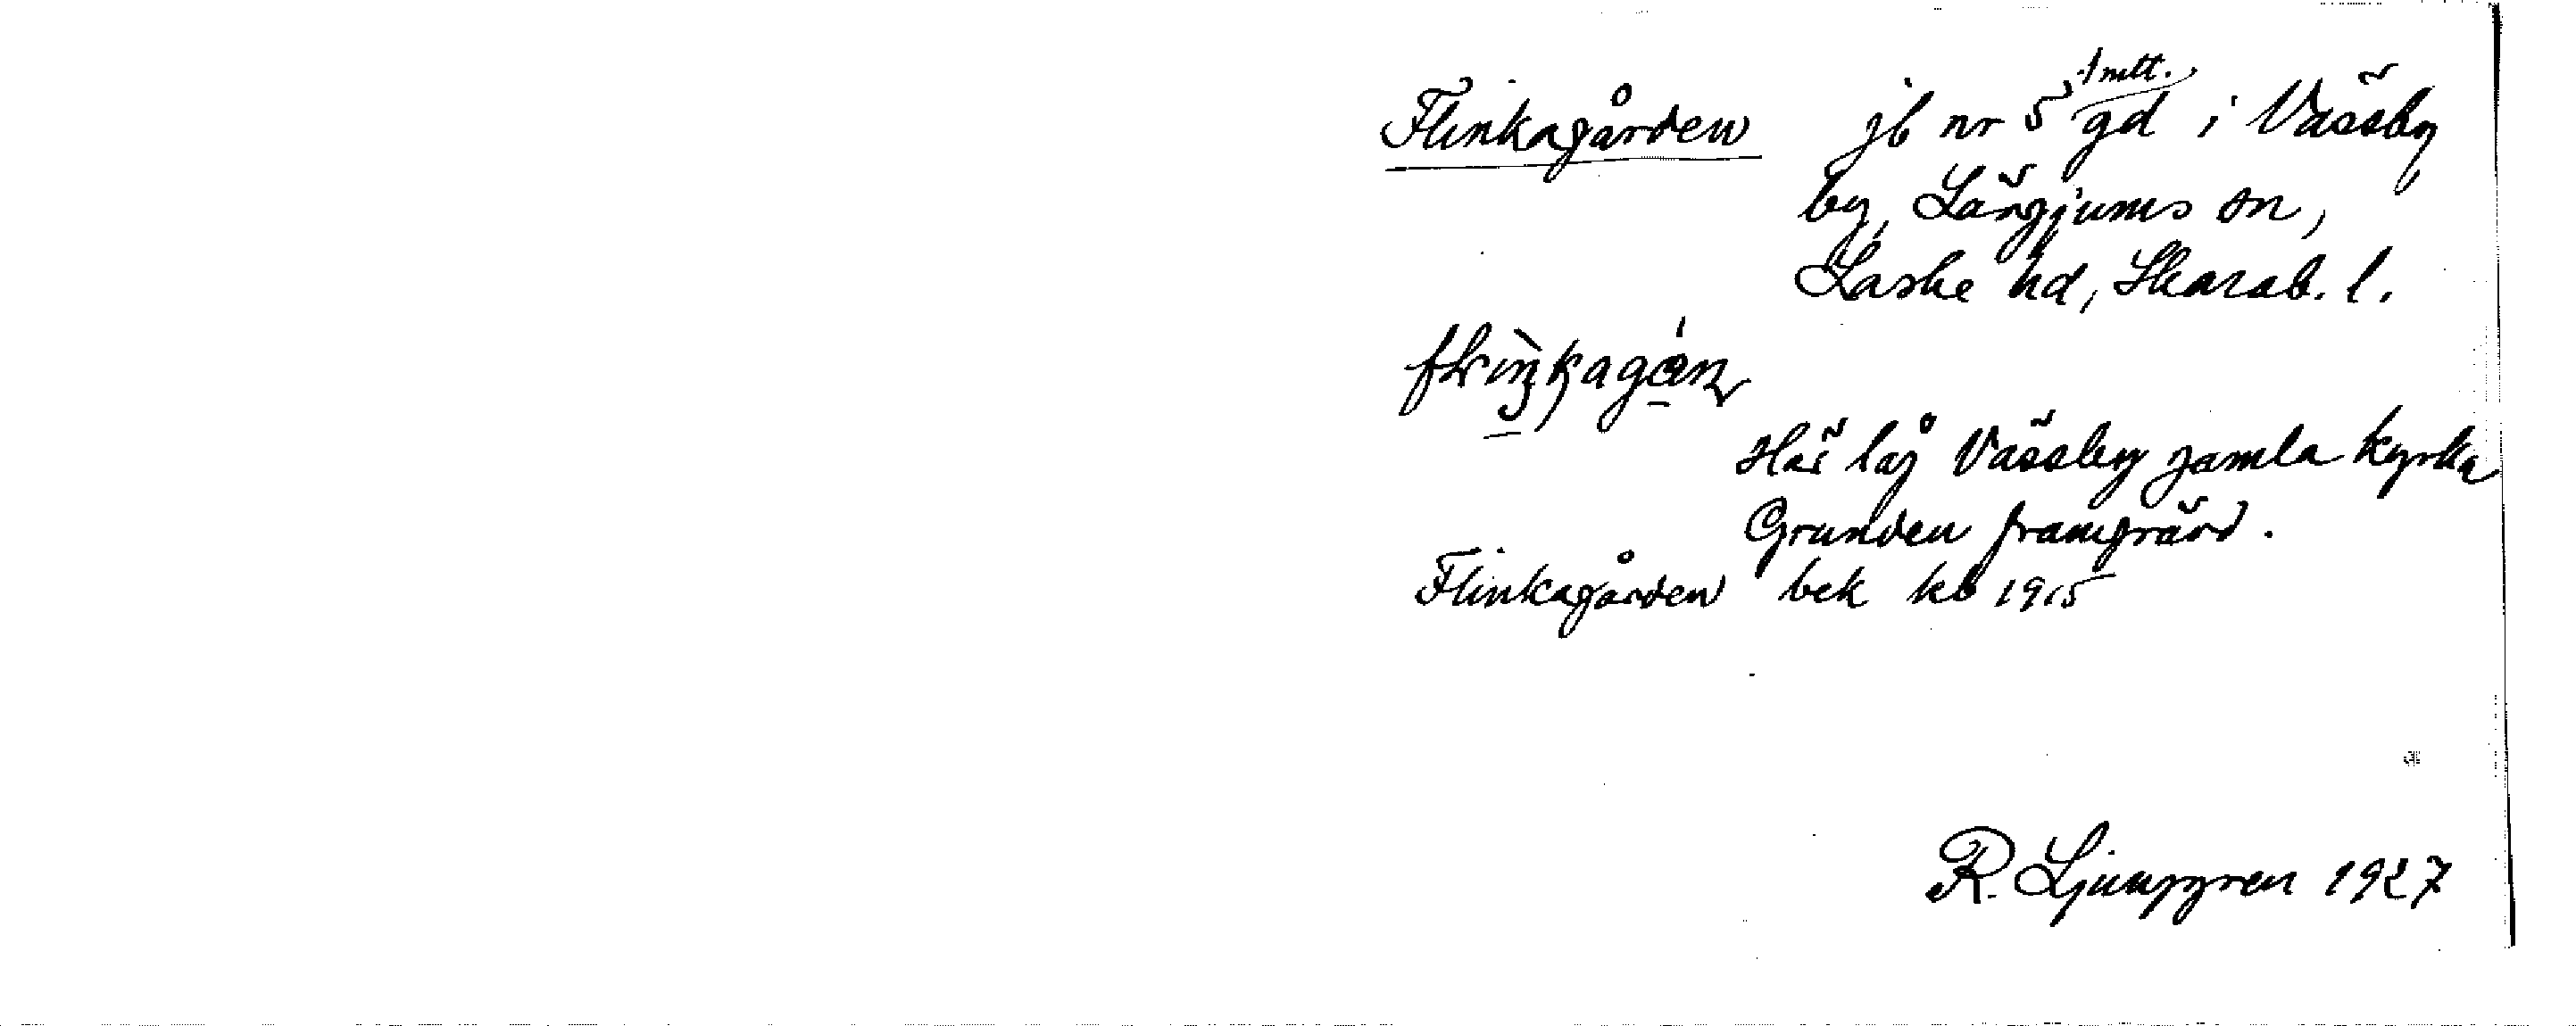 Flinkagården jb nr 5 1 mtt. gd i Vässby
by, Längjums sn,
Laske hd, Skarab. l.
Här låg Vässby gamla kyrka
Grunden framgrävd.
Flinkagården bek kb 1915
R. Ljunggren 1927